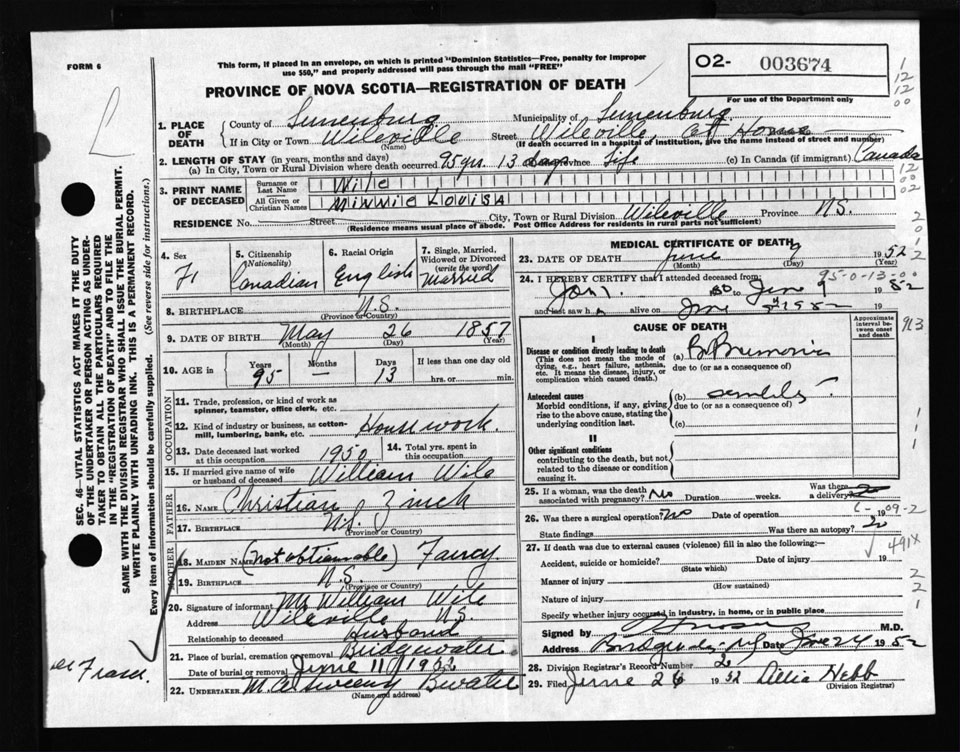 FORM 6
This form, if placed in an envelope, on which is printed "Dominion Statistics—Free, penalty for improper
use $50," and properly addressed will pass through the mail "FREE"
02- 003674
For use of the Department only
PROVINCE OF NOVA SCOTIA—REGISTRATION OF DEATH
1. PLACE OF DEATH
County of Lunenburg Municipality of Lunenburg
If in City or Town Wileville (Name) Street Wileville, At Home
(If death occurred in a hospital of institution, give the name instead of street and number)
2. LENGTH OF STAY (in years, months and days)
(a) In City, Town or Rural Division where death occurred 95 yrs. 13 days Province Life (c) In Canada (if immigrant) Canada
3. PRINT NAME OF DECEASED
Surname or Last Name Wile
All Given or Christian Names Minnie Louisa
RESIDENCE No. Street City, Town or Rural Division Wileville Province N.S.
(Residence means usual place of abode. Post Office Address for residents in rural parts not sufficient)
4. Sex F
5. Citizenship (Nationality) Canadian
6. Racial Origin English
7. Single, Married, Widowed or Divorced (write the word) Married
8. BIRTHPLACE N.S. (Province or Country)
9. DATE OF BIRTH May (Month) 26 (Day) 1857 (Year)
10. AGE in Years 95 Months — Days 13 If less than one day old hrs. or min.
OCCUPATION
11. Trade, profession, or kind of work as spinner, teamster, office clerk, etc.
12. Kind of industry or business, as cotton-mill, lumbering, bank, etc. Housework.
13. Date deceased last worked at this occupation 1950
14. Total yrs. spent in this occupation
15. If married give name of wife or husband of deceased William Wile
FATHER
16. NAME Christian Zinck
17. BIRTHPLACE N.S. (Province or Country)
MOTHER
18. MAIDEN NAME (not obtainable) Fancy.
19. BIRTHPLACE N.S. (Province or Country)
20. Signature of informant Mr William Wile
Address Wileville N.S.
Relationship to deceased Husband
21. Place of burial, cremation or removal Bridgewater
Date of burial or removal June 11, 1952
22. UNDERTAKER M. A. Sweeny Bwater
(Name and address)
MEDICAL CERTIFICATE OF DEATH
23. DATE OF DEATH June (Month) 9 (Day) 1952 (Year)
95-0-13-00
24. I HEREBY CERTIFY that I attended deceased from:
Jan 1. to June 9 1952
and last saw h alive on June 1952 19
CAUSE OF DEATH
Approximate interval between onset and death
I
Disease or condition directly leading to death
(This does not mean the mode of dying, e.g., heart failure, asthenia, etc. It means the disease, injury, or complication which caused death.)
(a) Br Pneumonia
due to (or as a consequence of)
Antecedent causes
Morbid conditions, if any, giving rise to the above cause, stating the underlying condition last.
(b) senility
due to (or as a consequence of)
(c)
II
Other significant conditions
contributing to the death, but not related to the disease or condition causing it.
25. If a woman, was the death associated with pregnancy? No Duration weeks. Was there a delivery? no
26. Was there a surgical operation? No Date of operation 19
State findings Was there an autopsy? no
491X
27. If death was due to external causes (violence) fill in also the following:—
Accident, suicide or homicide? (State which) Date of injury 19
Manner of injury (How sustained)
Nature of injury
Specify whether injury occurred in industry, in home, or in public place
Signed by M.D.
Address Bridgewater, NS Date June 24 1952
28. Division Registrar's Record Number 2
29. Filed June 26 1952 Delia Hebb
(Division Registrar)
SEC. 46—VITAL STATISTICS ACT MAKES IT THE DUTY
OF THE UNDERTAKER OR PERSON ACTING AS UNDER-
TAKER TO OBTAIN ALL THE PARTICULARS REQUIRED
IN THE "REGISTRATION OF DEATH" AND TO FILE THE
SAME WITH THE DIVISION REGISTRAR WHO SHALL ISSUE THE BURIAL PERMIT.
WRITE PLAINLY WITH UNFADING INK. THIS IS A PERMANENT RECORD.
Every item of information should be carefully supplied. (See reverse side for instructions.)
Fraser.